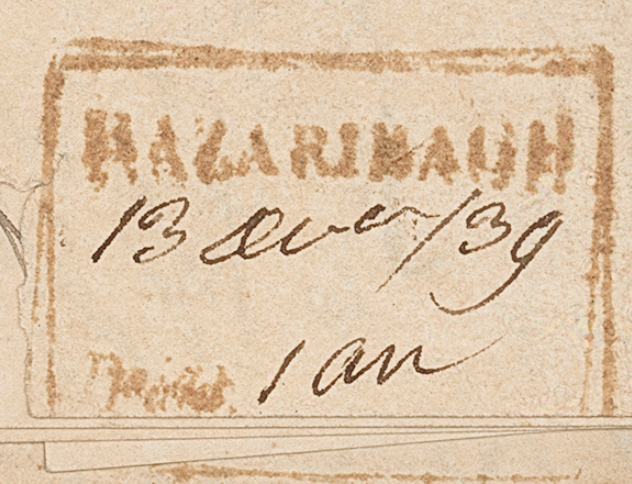 HAZARIBAUGH
13 Decer/39
1 an